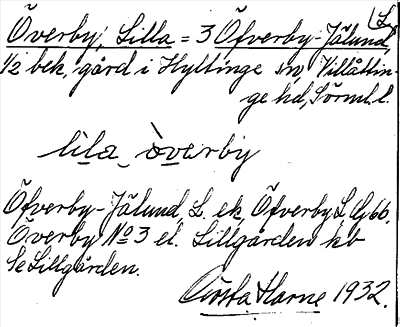 Överby, Lilla = 3 Öfverby-Jälund, L.
1/2 bek. gård i Hyltinge sn, Villåttin-
ge hd, Sörml. l.
lila överby
Öfverby-Jälund, L. ek, Öfverby L, Gj 66.
Överby No 3 el. Lillgården kb
Se Lillgården.
Gösta Harne 1932.